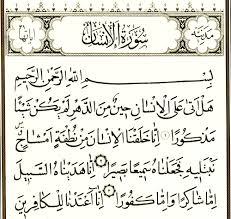 سُورَةُ الْإِنْسَانِ
بِسْمِ اللَّهِ الرَّحْمَٰنِ الرَّحِيمِ
هَلْ أَتَىٰ عَلَى الْإِنْسَانِ حِينٌ مِنَ الدَّهْرِ لَمْ يَكُنْ شَيْئًا
مَذْكُورًا إِنَّا خَلَقْنَا الْإِنْسَانَ مِنْ نُطْفَةٍ أَمْشَاجٍ
نَبْتَلِيهِ فَجَعَلْنَاهُ سَمِيعًا بَصِيرًا إِنَّا هَدَيْنَاهُ السَّبِيلَ
إِمَّا شَاكِرًا وَإِمَّا كَفُورًا إِنَّا أَعْتَدْنَا لِلْكَافِرِينَ